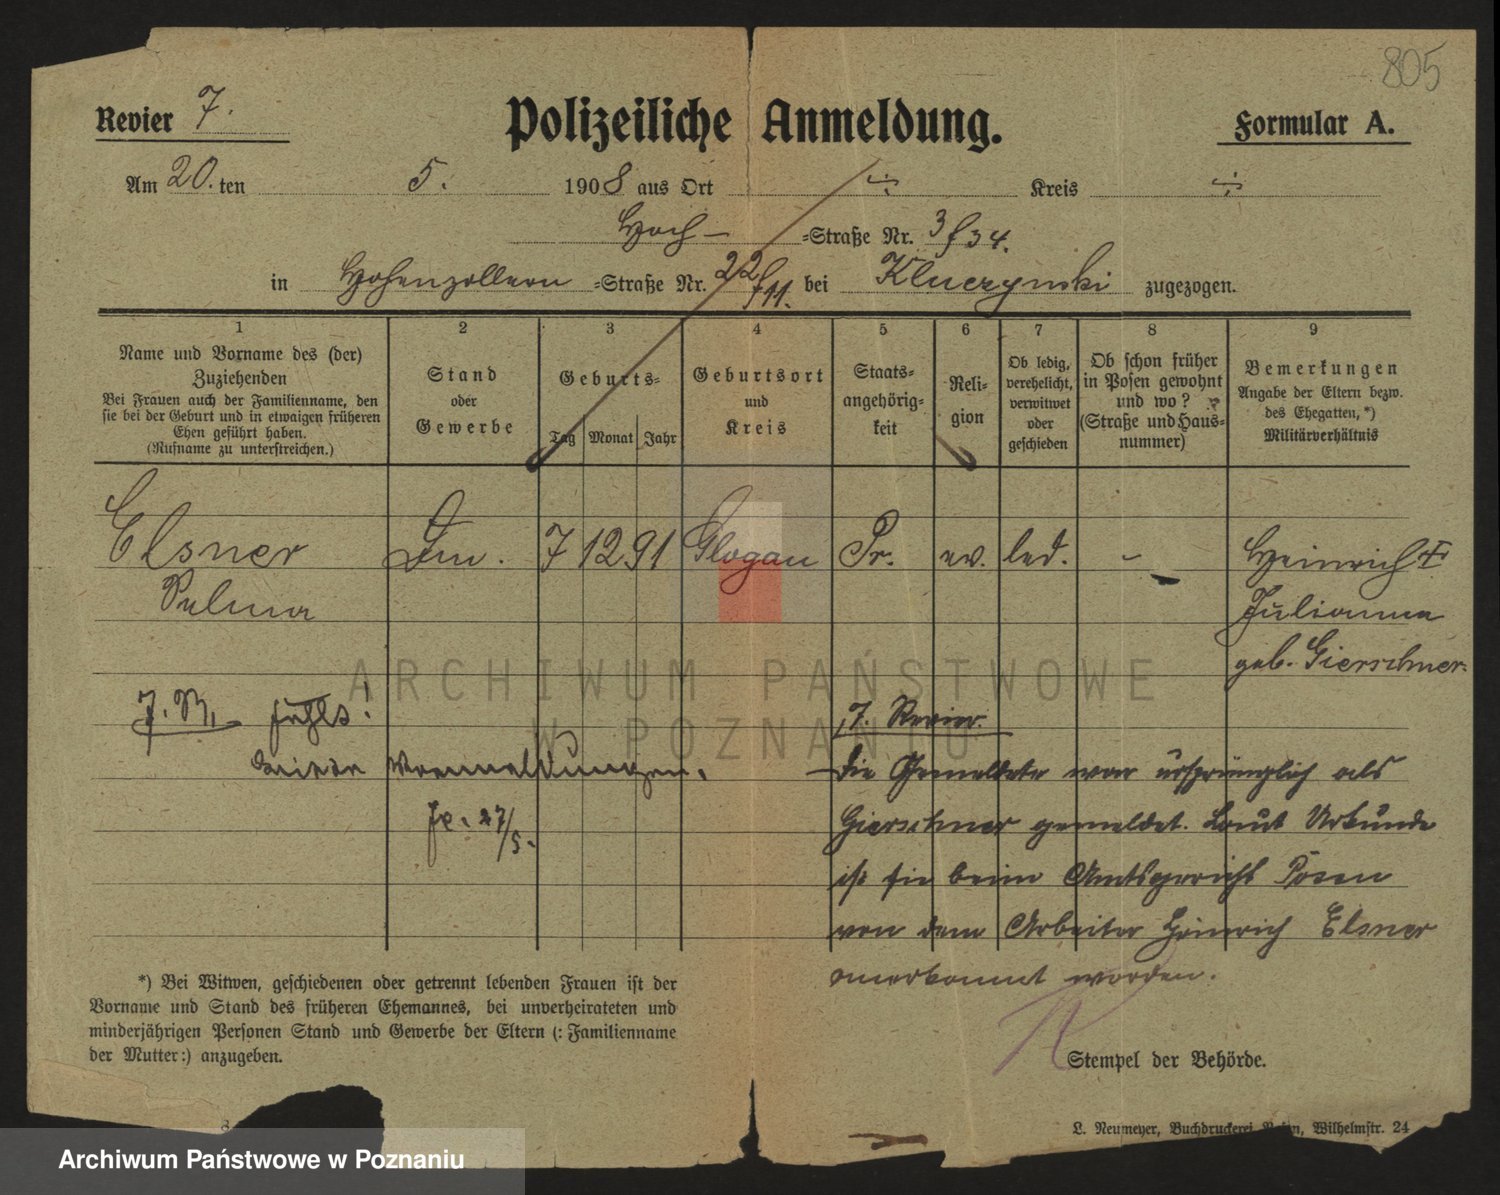 805
Revier 7.
Polizeiliche Anmeldung.
Formular A.
Am 20. ten 5. 1908 aus Ort ÷ Kreis ÷
Hoch- =Straße Nr. 3/34.
in Hohenzollern =Straße Nr. 22/11. bei Kluczynski zugezogen.
1 2 3 4 5 6 7 8 9
Name und Vorname des (der)
Zuziehenden
Bei Frauen auch der Familienname, den
sie bei der Geburt und in etwaigen früheren
Ehen geführt haben.
(Rufname zu unterstreichen.)
Stand
oder
Gewerbe
Geburts=
Tag Monat Jahr
Geburtsort
und
Kreis
Staats=
angehörig=
keit
Reli=
gion
Ob ledig,
verehelicht,
verwitwet
oder
geschieden
Ob schon früher
in Posen gewohnt
und wo?
(Straße und Haus=
nummer)
Bemerkungen
Angabe der Eltern bezw.
des Ehegatten, *)
Militärverhältnis
Elsner 7 12 91 Glogau Pr. ev. led. - Heinrich
Julianna
geb. Gierschner.
7. R.
27/5.
7. Revier.
Die Gemeldete war ursprünglich als
Gierschner gemeldet. Laut Urkunde
ist sie beim Amtsgericht Posen
von dem Arbeiter Heinrich Elsner
anerkannt worden.
*) Bei Witwen, geschiedenen oder getrennt lebenden Frauen ist der
Vorname und Stand des früheren Ehemannes, bei unverheirateten und
minderjährigen Personen Stand und Gewerbe der Eltern (: Familienname
der Mutter:) anzugeben.
Stempel der Behörde.
L. Neumeyer, Buchdruckerei Posen, Wilhelmstr. 24
ARCHIWUM PAŃSTWOWE
W POZNANIU
Archiwum Państwowe w Poznaniu